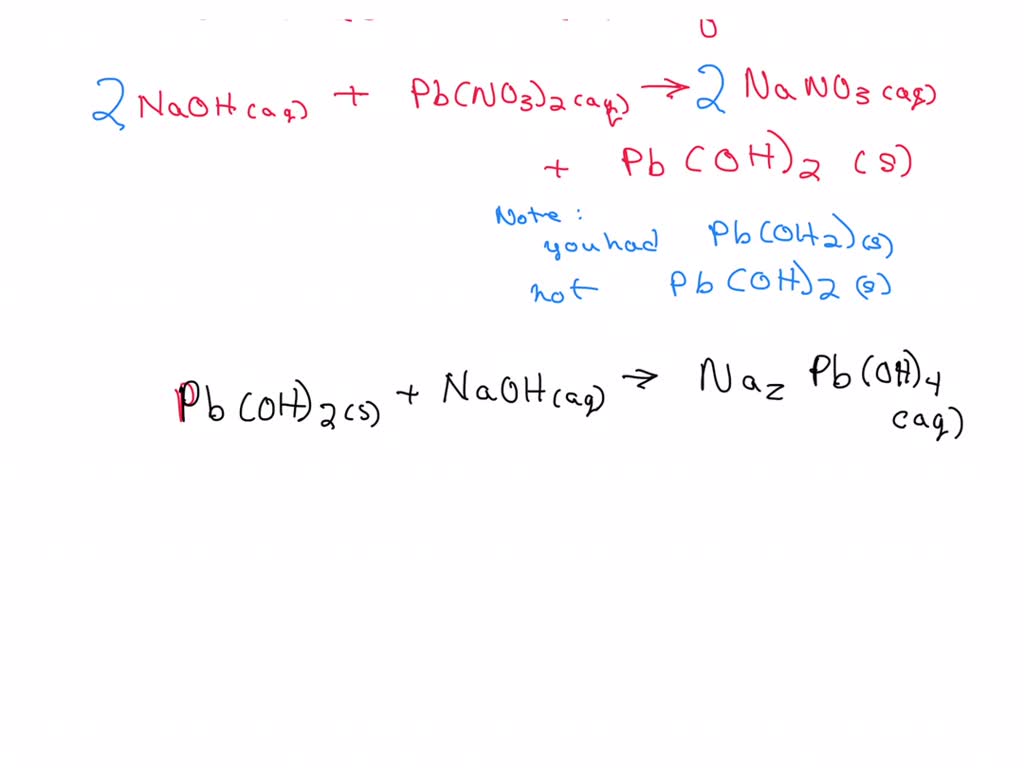 2 NaOH(aq) + Pb(NO3)2(aq) → 2 NaNO3(aq)
+ Pb(OH)2 (s)
Note:
you had Pb(OH2)(s)
not Pb(OH)2 (s)
Pb(OH)2(s) + NaOH(aq) → Na2 Pb(OH)4
(aq)